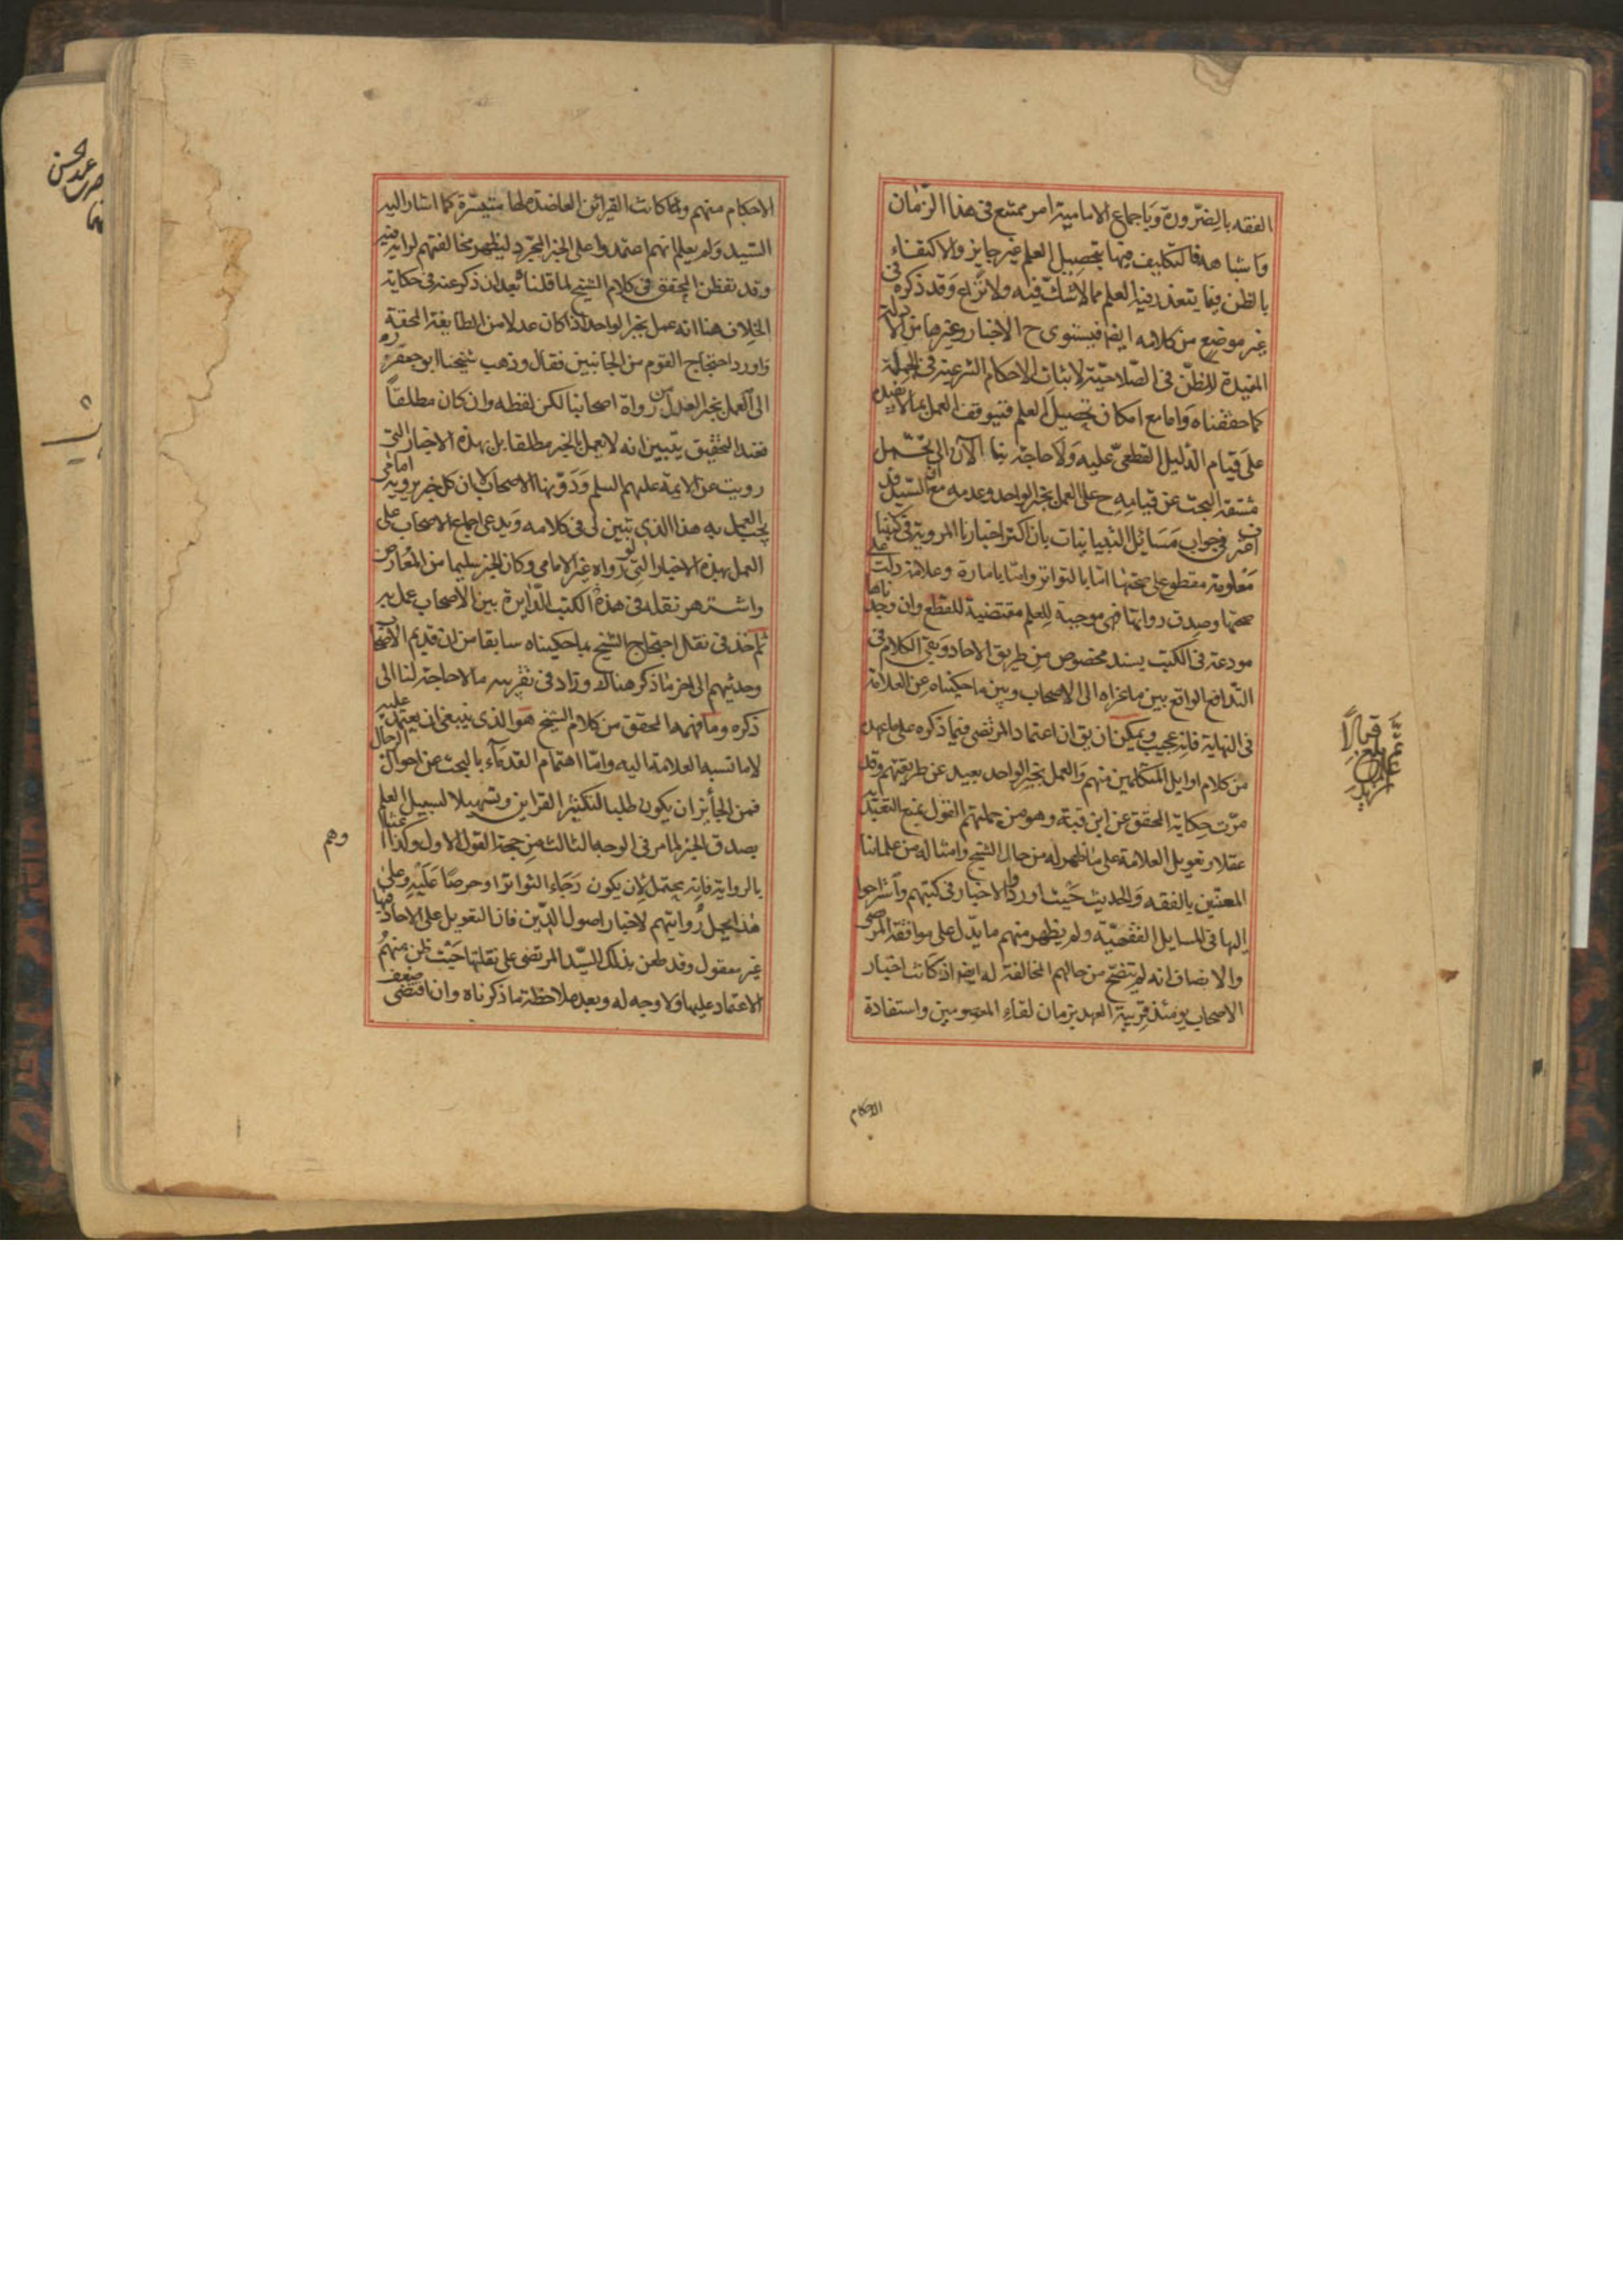 الفقه بالضّرورة وَباجماع الاماميّة امر ممتنع فى هذا الزّمان
وَاشباهه فالتكليف فيها بتحصيل العلم غير جايز والاكتفاء
بالظن فيما يتعذر فيه العلم مما لا شكّ فيه ولا نزاع وَقد ذكره فى
غير موضع من كلامه ايضا فيستوى ح الاخبار وغيرها من الادلة
المفيدة للظنّ فى الصّلاحيّة لاثبات الاحكام الشرعيّة فى الجملة
كما حققناه وَاما مع امكان تحصيل العلم فيتوقف العمل بما لا يفيده
علىَ قيام الدّليل القطعىّ عليه وَلا حاجة بنا الآن الى تحمّل
مشقة البحث عن قيامه ح على العمل بخبر الواحد وعدمه مع انّ السّيد قد
اعترف فى جواب مَسَائل التبانيات بان اكثر اخبارنا المروية فى كتبنا
مَعلومة مقطوع على صحّتها امّا بالتواتر وامّا بامارة وعلامة دلت على
صحّتها وصدق رواتها فهى موجبة للِعلم مقتضية للقطع وان وجدناها
مودعة فى الكتب بسند مخصوص من طريق الاحاد وَبقى الكلام فى
التّدافع الواقع بين ما عزاه الى الاصحاب وبين ما حكيناه عن العلامة
فى النهاية فانه عجيب ويمكن ان يق ان اعتماد المرتضى فيما ذكره على ما عهده
من كلام اوايل المتكلمين منهم وَالعمل بخبر الواحد بعيد عن طريقتهم وقد
مرّت حكاية المحقق عن ابن قبة وهو من جملتهم القول بمنع التعبّد به
عقلا وتعويل العلامة على ما ظهر له من حال الشيخ وامثاله من علمائنا
المعتنين بالفقه وَالحديث حَيث اوردوا الاخبار فى كتبهم وَاستراحوا
اليها فى المسايل الفقهيّة ولم يظهر منهم ما يدّل على موافقة المرتضى
والانصاف انه لم يتضح من حالهم المخالفة له ايضا اذ كانت اخبار
الاصحاب يومئذ قريبة العهد بزمان لقاءِ المعصومين واستفادة
الاحكام
الاحكام منهم وكانت القرائن العاضدة لها متيسّرة كما اشار اليه
السّيد وَلم يعلم انهم اعتمدوا على الخبر المجّرد ليظهر مخالفتهم لرايه فيه
وقد تفطن المحقق فى كلام الشيخ لما قلناه بعد ان ذكر عنه فى حكاية
الخلاف هنا انه عمل بخبر الواحد اذا كان عدلا من الطايفة المحقة
وَاورد احتجاج القوم من الجانبين فقال وذهب شيخنا ابو جعفر ره
الى العمل بخبر العدل من رواة اصحابنا لكن لفظه وان كان مطلقاً
فعند التحقيق يتبين انه لا يعمل بالخبر مطلقا بل بهذه الاخبار التى
رويت عن الائمة عليهم السلم وَدَوّنها الاصحاب لا ان كل خبر يرويه امامى
يجب العمل به هذا الذى تبين لى فى كلامه وَيدعى اجماع الاصحاب على
العمل بهذه الاخبار التى لو رواه غير الامامى وكان الخبر سليما من المُعارض
واشتهر نقله فى هذه الكتب الدّايرة بين الاصحاب عمل به
ثم اخذ فى نقل احتجاج الشيخ بما حكيناه سابقا من ان قديم الاصحاب
وحديثهم الى اخر ما ذكر هناك وزاد فى تقريبه ما لا حاجة لنا الى
ذكره وما فهمه المحقق من كلام الشيخ هو الذى ينبغى ان يعتمد عليه
لا ما نسبه العلامة اليه وامّا اهتمام القدمآء بالبحث عن احوال الرجال
فمن الجائز ان يكون طلبا لتكثير القراين وتسهيلا لسبيل العلم
بصدق الخبر لما مر فى الوجه الثالث من حجة القول الاول وكذا اعتنا
وهم
بالرواية فانه يحتمل لان يكون رَجَاء التواتر او حرصًا عَلَيْهِ وعلىٰ
هٰذا يحمل رُوايتهم لاخبار اصول الدّين فان التعويل على الاحاد فيها
غير معقول وقد طعن بذلك السّيد المرتضى على نقلتها حَيْث ظن منهمُ
الاعتماد عليها ولا وجه له وبعد ملاحظة ما ذكرناه وان اقتضى ضعف